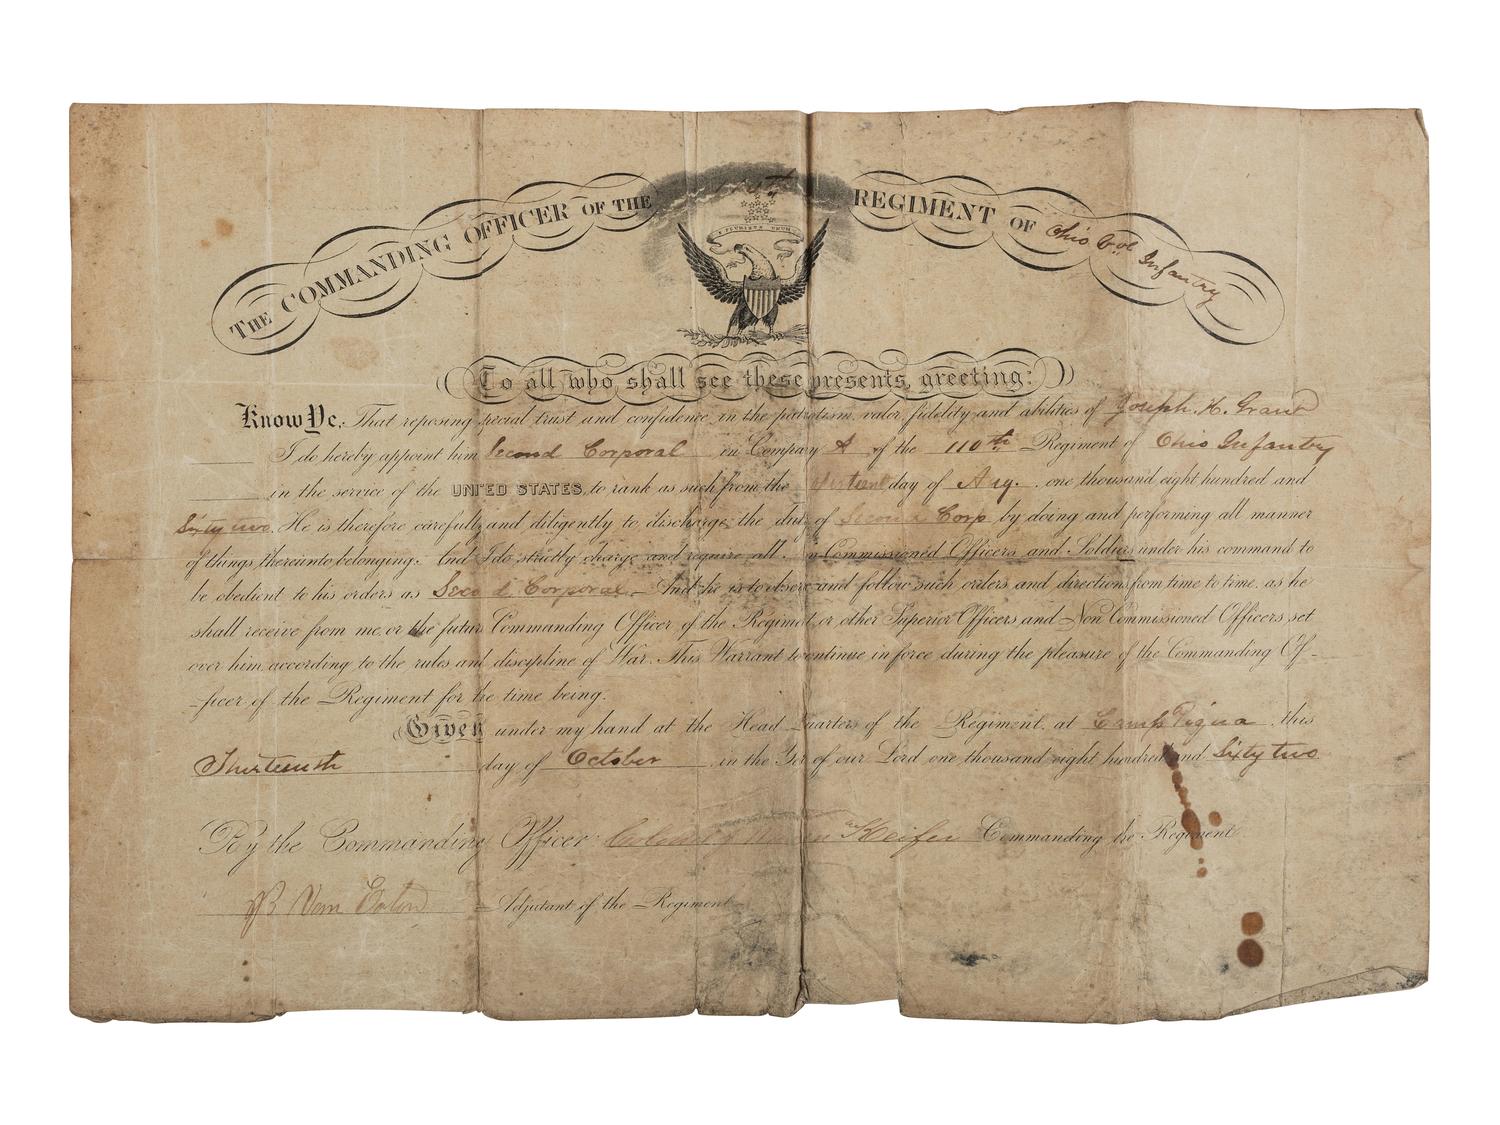 THE COMMANDING OFFICER OF THE REGIMENT OF Ohio Vol Infantry
E PLURIBUS UNUM
To all who shall see these presents, greeting:
Know Ye, That reposing special trust and confidence in the patriotism, valor, fidelity and abilities of Joseph. H. Grant
I do hereby appoint him Second Corporal in Company A of the 110th Regiment of Ohio Infantry
in the service of the UNITED STATES, to rank as such from the day of Aug. one thousand eight hundred and
Sixty two. He is therefore carefully and diligently to discharge the duty of Second Corp by doing and performing all manner
of things thereunto belonging. And I do strictly charge and require all Commissioned Officers and Soldiers under his command to
be obedient to his orders as Second Corporal And he is to observe and follow such orders and directions from time to time, as he
shall receive from me, or the future Commanding Officer of the Regiment or other Superior Officers and Non Commissioned Officers set
over him, according to the rules and discipline of War. This Warrant to continue in force during the pleasure of the Commanding Of-
-ficer of the Regiment for the time being.
Given under my hand at the Head Quarters of the Regiment, at Camp Piqua this
Thirteenth day of October in the Yer of our Lord one thousand eight hundred and Sixty two
By the Commanding Officer: Keifer Commanding he Regiment
B Van Eaton Adjutant of the Regiment